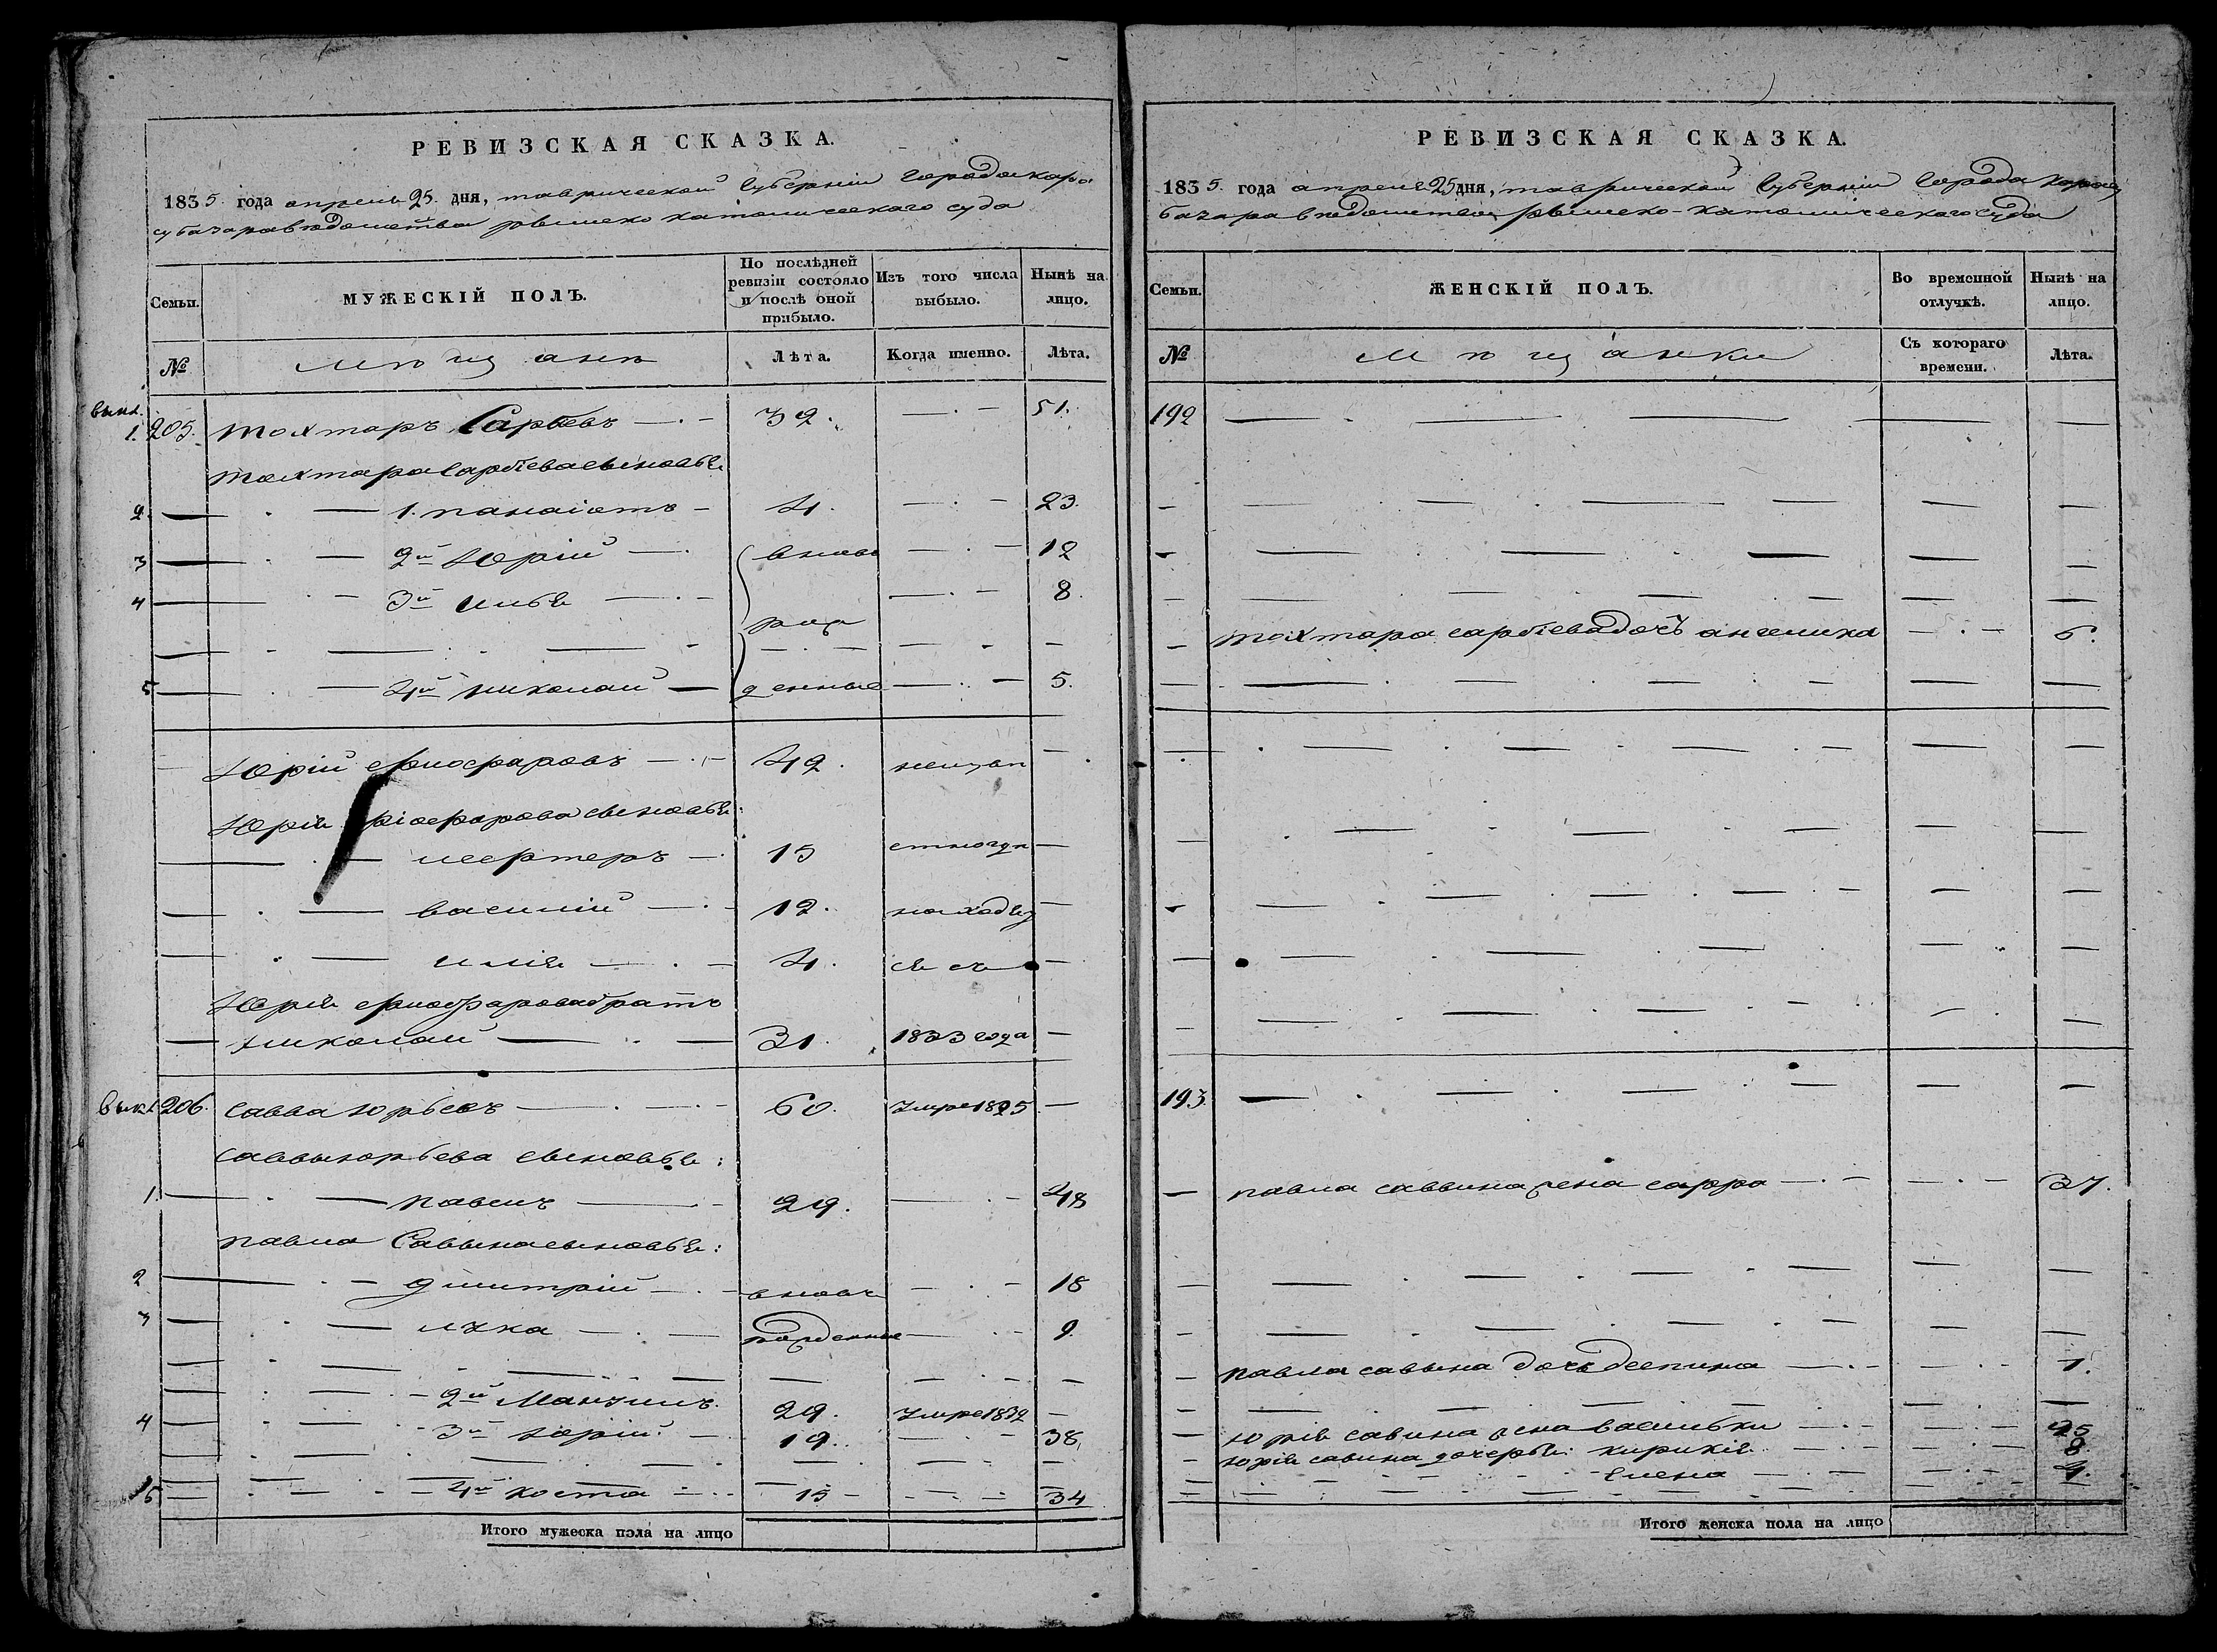 РЕВИЗСКАЯ СКАЗКА.
1835 года апреля 25 дня, таврической Губерніи Города кара
субазара вѣдомства римско католическаго суда
Семьи.
МУЖЕСКІЙ ПОЛЪ.
По послѣдней ревизіи состояло и послѣ оной прибыло.
Изъ того числа выбыло.
Нынѣ на лицо.
№
мѣщане
Лѣта.
Когда именно.
Лѣта.
1. 205. тохтаръ Сарбевъ 32. 51.
тохтара Сарбева сыновья
2. 1. панаіотъ 4. 23.
3 2й Юрій вновь 12
4 3й илья 8.
рож
5 4й николай денные 5.
Юрій 42.
Юрія сыновья:
15
василій 12. находя
илія 4. ся съ
Юрія братъ
николай 31. 1833 года
206. савва юрьевъ 60. умре 1825
саввы юрьева сыновья:
1. павелъ 29. 48
павла Саввина сыновья:
2 дмитрій вновь 18
3 лука рожденные 9.
2й Мануилъ. 29. умре 1832
4 3й юрій 19. 38.
5 4й коста 15 34
Итого мужеска пола на лицо
РЕВИЗСКАЯ СКАЗКА.
1835. года апреля 25 дня, таврической Губерніи Города карасу
базара вѣдомства римско-католическаго суда
Семьи.
ЖЕНСКІЙ ПОЛЪ.
Во временной отлучкѣ.
Нынѣ на лицо.
№
мѣщанки
Съ котораго времени.
Лѣта.
192
тохтара сарбева дочь ангелика 6.
193.
павла саввина жена сарра 37.
павла саввина дочь деспина 1.
юрія савина жена василики 25
юрія савина дочерьи: кирикія 8
Елена 4.
Итого женска пола на лицо